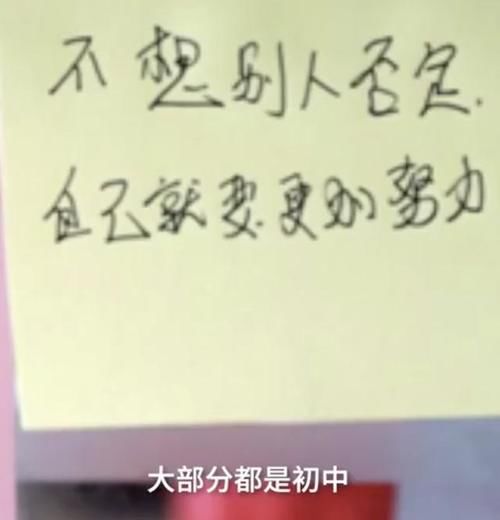 不想别人否定
自己就要更加努力
大部分都是初中